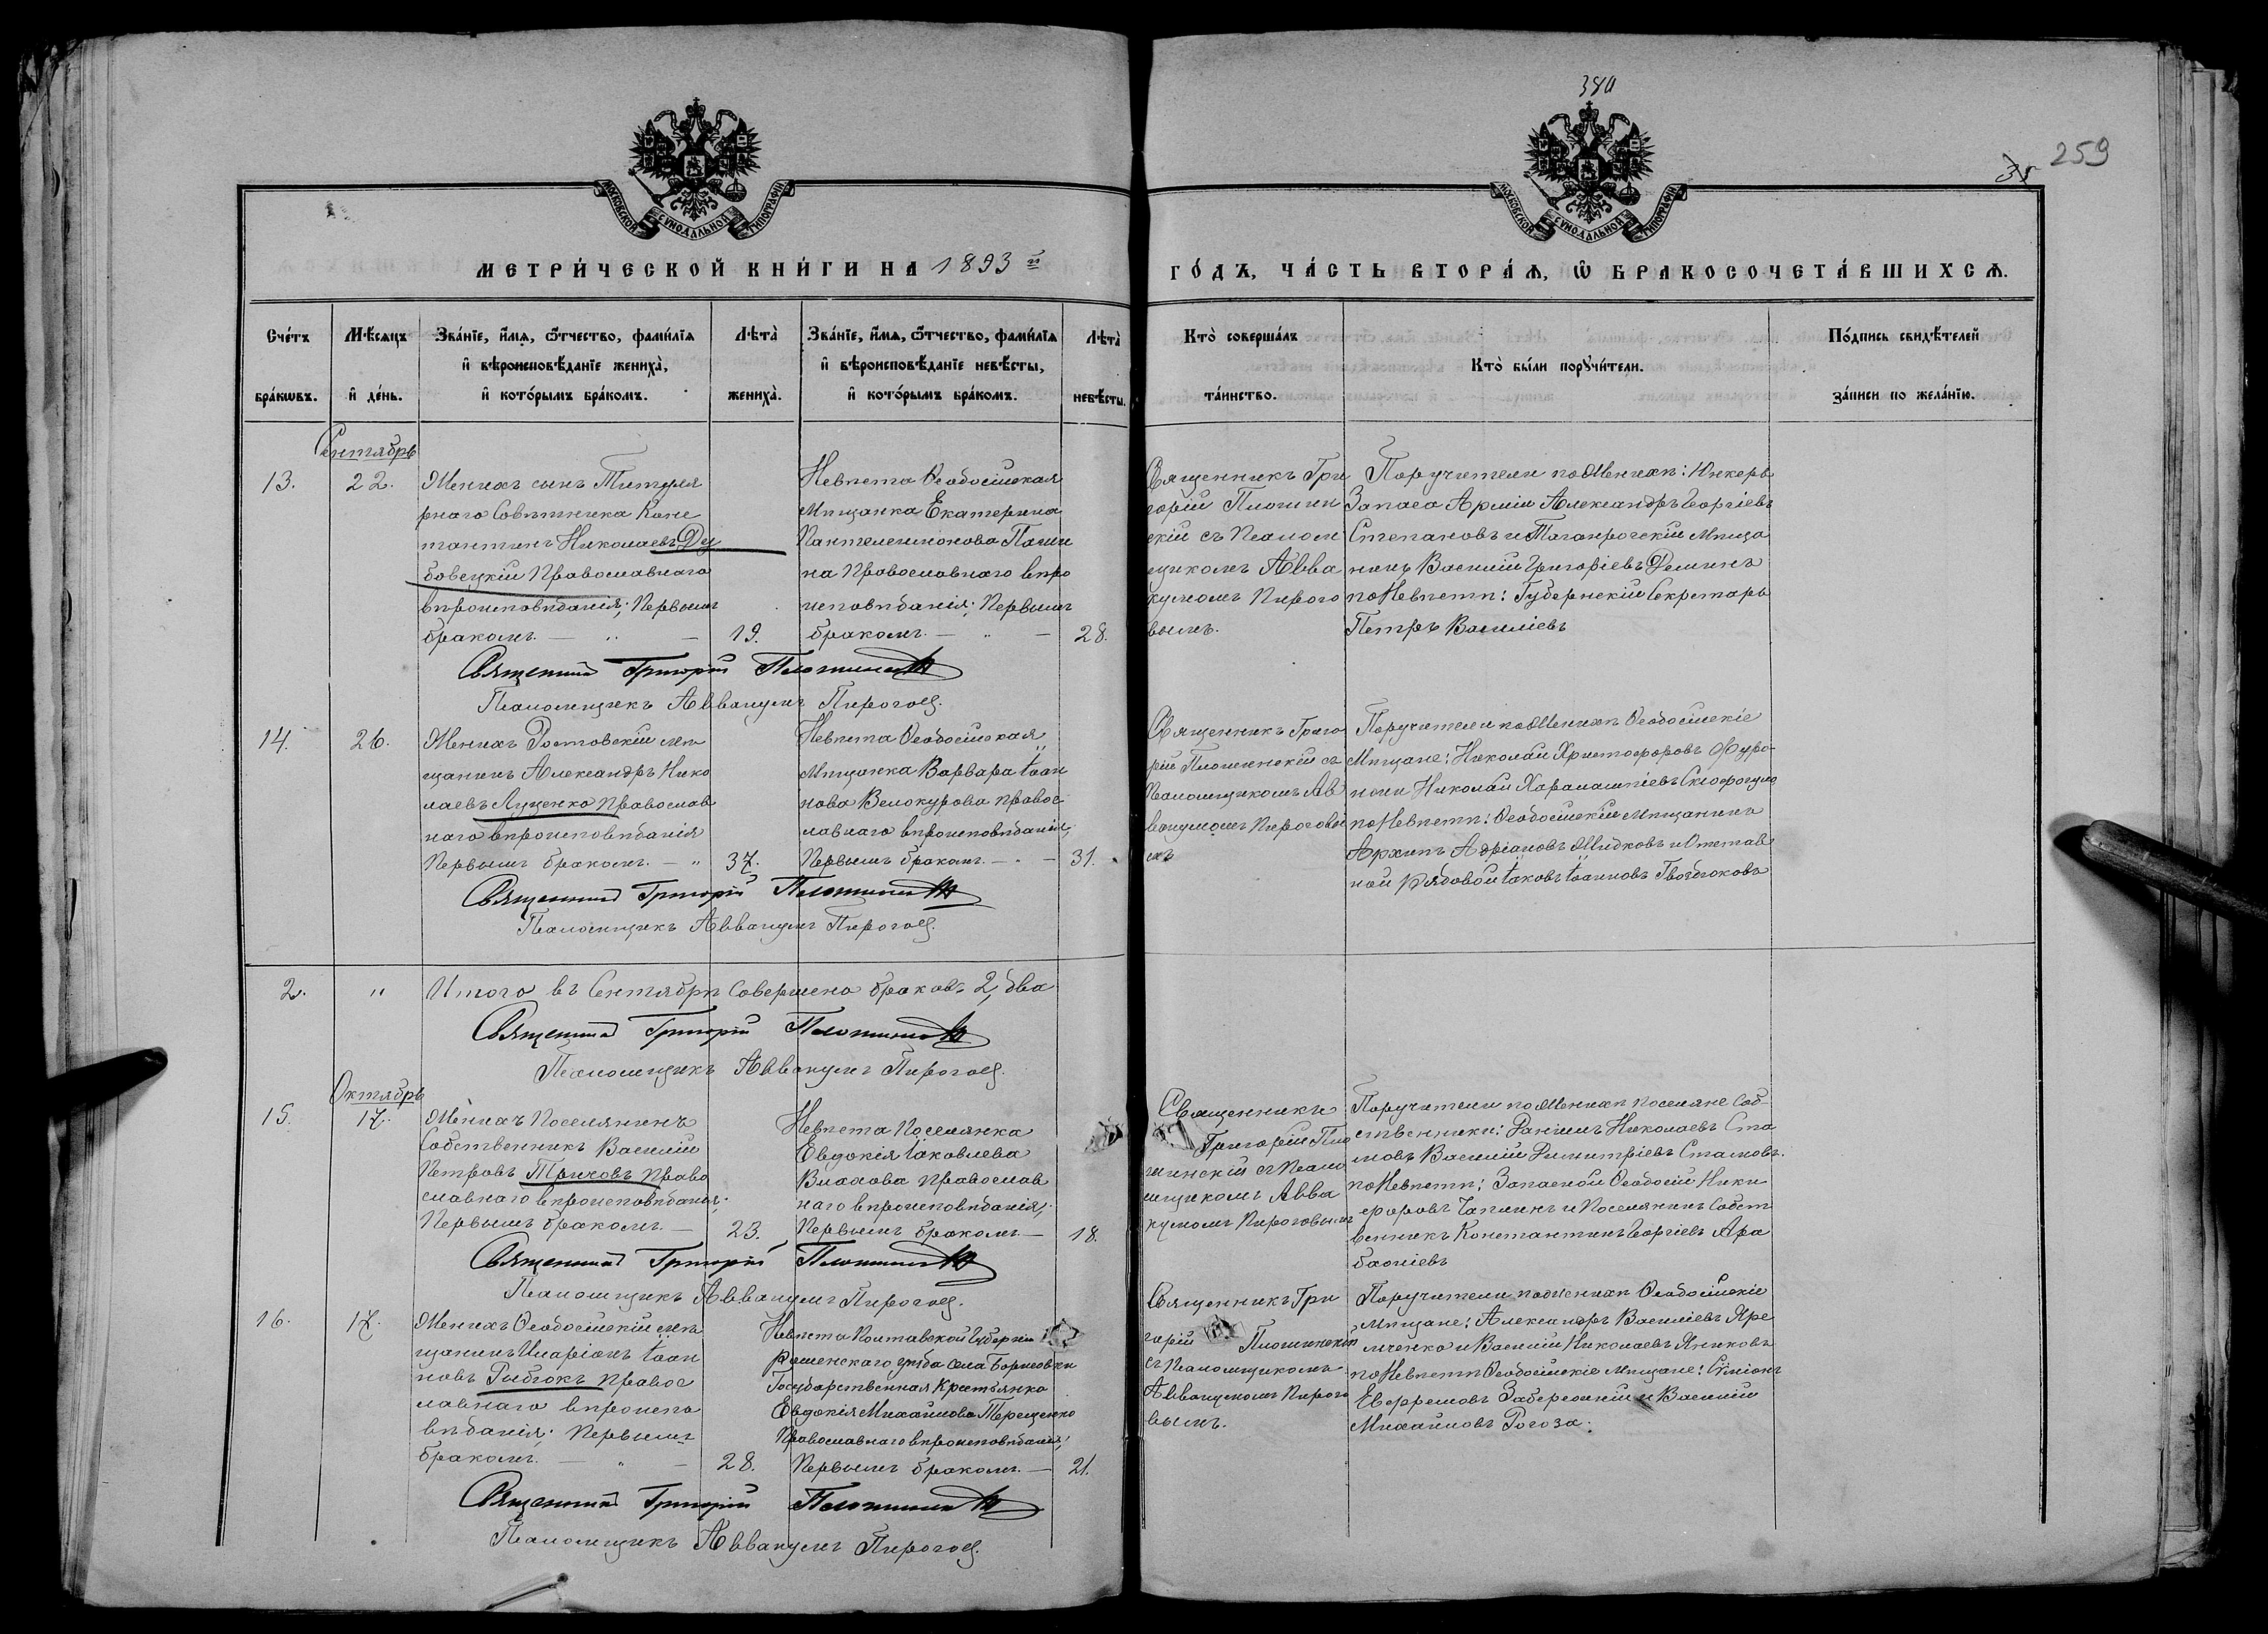 380
259
35
МОСКОВСКОЙ СѴНОДАЛЬНОЙ ТИПОГРАФІИ
МОСКОВСКОЙ СѴНОДАЛЬНОЙ ТИПОГРАФІИ
МЕТРИ́ЧЕСКОЙ КНИ́ГИ НА 1893 й
ГО́ДЪ, ЧА́СТЬ ВТОРА́Ѧ, Ѡ БРАКОСОЧЕТА́ВШИХСѦ.
Сче́тъ бра́кѡвъ.
Мѣ́сѧцъ и де́нь.
Зва́нїе, и́мѧ, ѿчество, фами́лїѧ
и вѣроисповѣ́данїе жениха̀,
и кото́рымъ бра́комъ.
Лѣта̀ жениха̀.
Зва́нїе, и́мѧ, ѿчество, фами́лїѧ
и вѣроисповѣ́данїе невѣ́сты,
и кото́рымъ бра́комъ.
Лѣта̀ невѣ́сты.
Кто̀ соверша́лъ
та́инство.
Кто̀ бы́ли порꙋчи́тели.
По́дпись свидѣ́телей
за́писи по жела́нїю.
Сентябрь
13.
22.
Женихъ сынъ Титуля
рнаго Совѣтника Конс
тантинъ Николаевъ Ду
бовецкій Православнаго
вѣроисповѣданія; Первымъ
бракомъ. — „ —
19.
Невѣста Ѳеодосійская
Мѣщанка Екатерина
Пантелеимонова
на Православнаго вѣро
исповѣданія; Первымъ
бракомъ. — „ —
28.
Священникъ Гри
горій Плошин
скій съ Псалом
щикомъ Авва
кумомъ Пирого
вымъ.
Поручители по Женихѣ: Юнкеръ
Запаса Арміи Александръ Георгіевъ
Степановъ и Таганрогскій Мѣща
нинъ Василій Григоріевъ Деминъ
по Невѣстѣ: Губернскій Секретарь
Петръ Василіевъ
Священникъ Григорій Плошинскій
Псаломщикъ Аввакумъ Пироговъ.
14.
26.
Женихъ Ростовскій мѣ
щанинъ Александръ Нико
лаевъ Луценко Православ
наго вѣроисповѣданія
Первымъ бракомъ. — „
37.
Невѣста Ѳеодосійская
Мѣщанка Варвара Іоан
нова Белокурова правос
лавнаго вѣроисповѣданія,
Первымъ бракомъ. — „ —
31.
Священникъ Григо
рій Плошинскій съ
Псаломщикомъ Ав
вакумомъ Пироговы
мъ
Поручители по Женихѣ Ѳеодосійскіе
Мѣщане: Николай Христофоровъ
Николай Харалампіевъ
по Невѣстѣ: Ѳеодосійскій мѣщанинъ
Архипъ Адріановъ Жидковъ и Отстав
ной рядовой Іаковъ Іоанновъ Гвоздиковъ
Священникъ Григорій Плошинскій
Псаломщикъ Аввакумъ Пироговъ.
2.
„
Итого въ Сентябрѣ Совершено браковъ 2, два
Священникъ Григорій Плошинскій
Псаломщикъ Аввакумъ Пироговъ.
Октябрь
15.
17.
Женихъ Поселянинъ
Собственникъ Василій
Петровъ Тричковъ Право
славнаго вѣроисповѣданія;
Первымъ бракомъ. —
23.
Невѣста Поселянка
Евдокія Іаковлева
Влахова Православ
наго вѣроисповѣданія;
Первымъ бракомъ —
18.
Священникъ
Григорій Пло
шинскій съ Псало
мщикомъ Авва
кумомъ Пироговымъ
Поручители по Женихѣ поселяне Соб-
ственники: Николаевъ Ста
мовъ Василій Димитріевъ Стамовъ.
по Невѣстѣ: Запасной Ѳеодосій Ники
форовъ Чаплинъ и Поселянинъ Собст
венникъ Константинъ Георгіевъ Ара
баджіевъ
Священникъ Григорій Плошинскій
Псаломщикъ Аввакумъ Пироговъ.
16.
17.
Женихъ Ѳеодосійскій мѣ
щанинъ Иларіонъ Іоан
новъ Рибчокъ Правос
лавнаго вѣроиспо
вѣданія; Первымъ
бракомъ. — „ —
28.
Невѣста Полтавской Губерніи
уѣзда села Борисовки
Государственная Крестьянка
Евдокія Михаилова Терещенко
Православнаго вѣроисповѣданія;
Первымъ бракомъ. —
21.
Священникъ Гри
горій Плошинскій
съ Псаломщикомъ
Аввакумомъ Пирого
вымъ.
Поручители по женихѣ Ѳеодосійскіе
мѣщане: Александръ Василіевъ Яре
мченко и Василій Николаевъ Янковъ
по Невѣстѣ Ѳеодосійскіе мѣщане: Симіонъ
Евфремовъ Забережный и Василій
Михаиловъ Рогоза.
Священникъ Григорій Плошинскій
Псаломщикъ Аввакумъ Пироговъ.